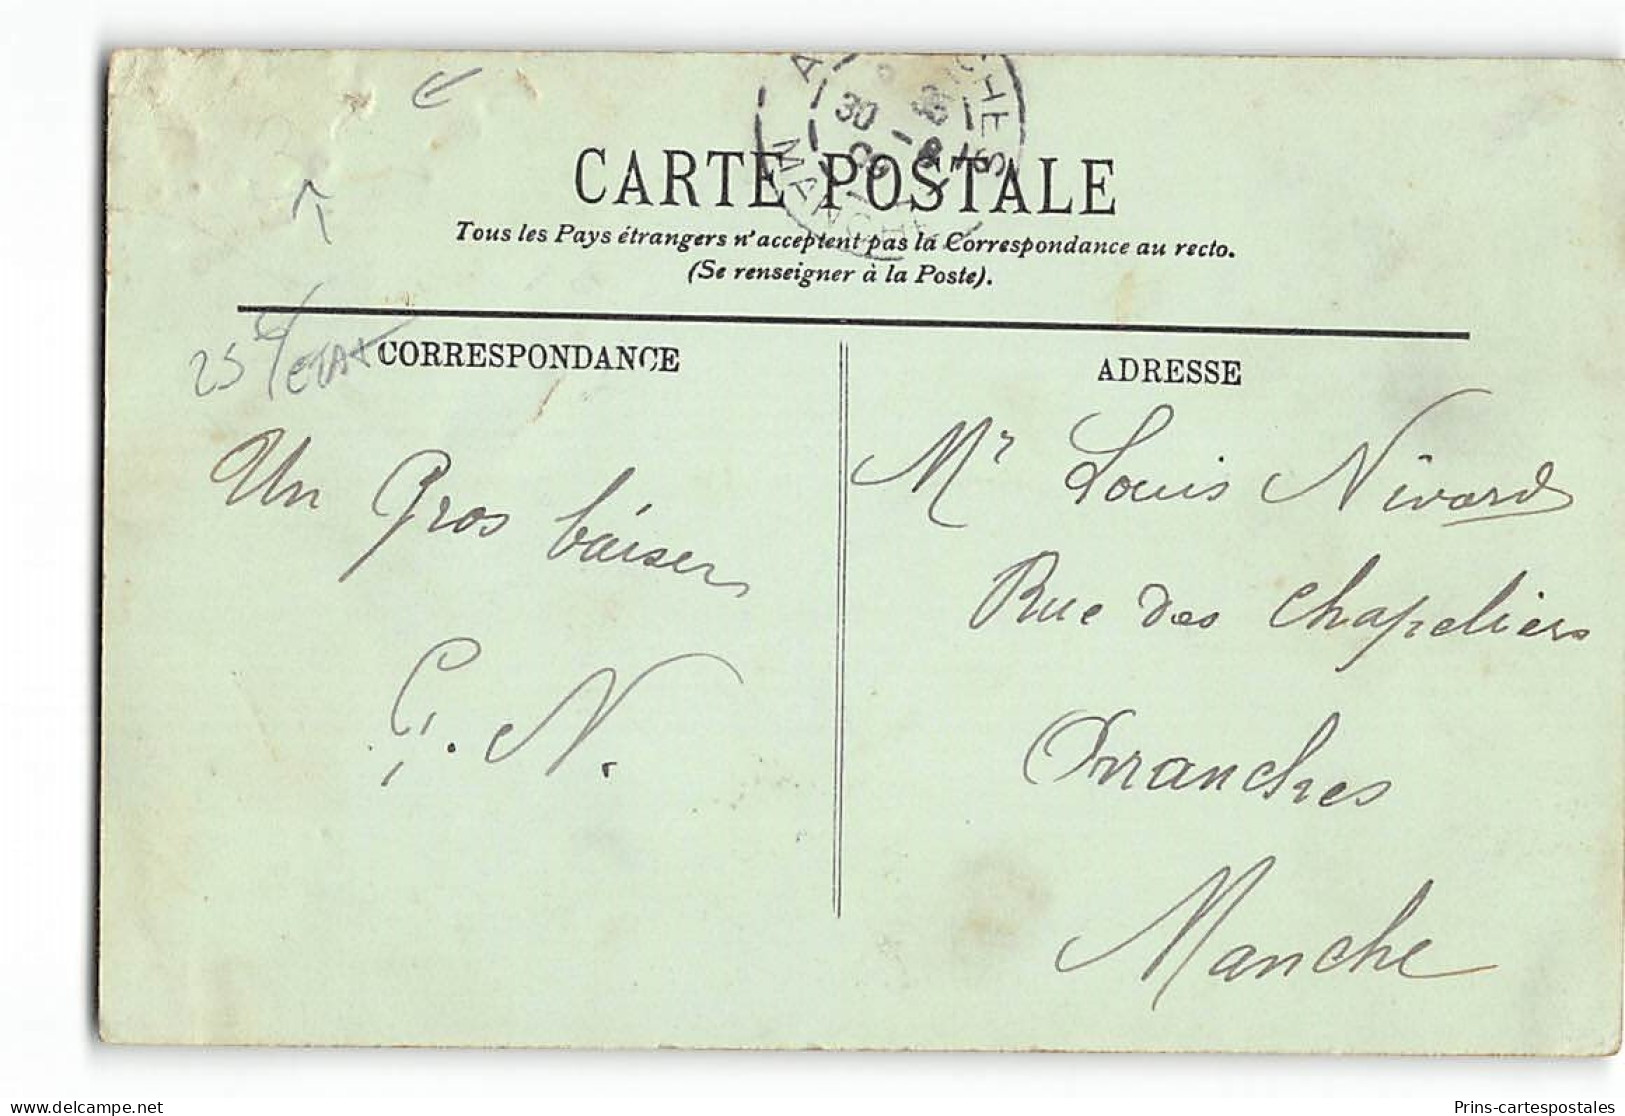 30
MANCHE
CARTE POSTALE
Tous les Pays étrangers n'acceptent pas la Correspondance au recto.
(Se renseigner à la Poste).
25 ETAT
CORRESPONDANCE
Un Gros báiser
G. N.
ADRESSE
Mr Louis Nivard
Rue des Chapeliers
Avranches
Manche
delcampe.net
Prins-cartespostales